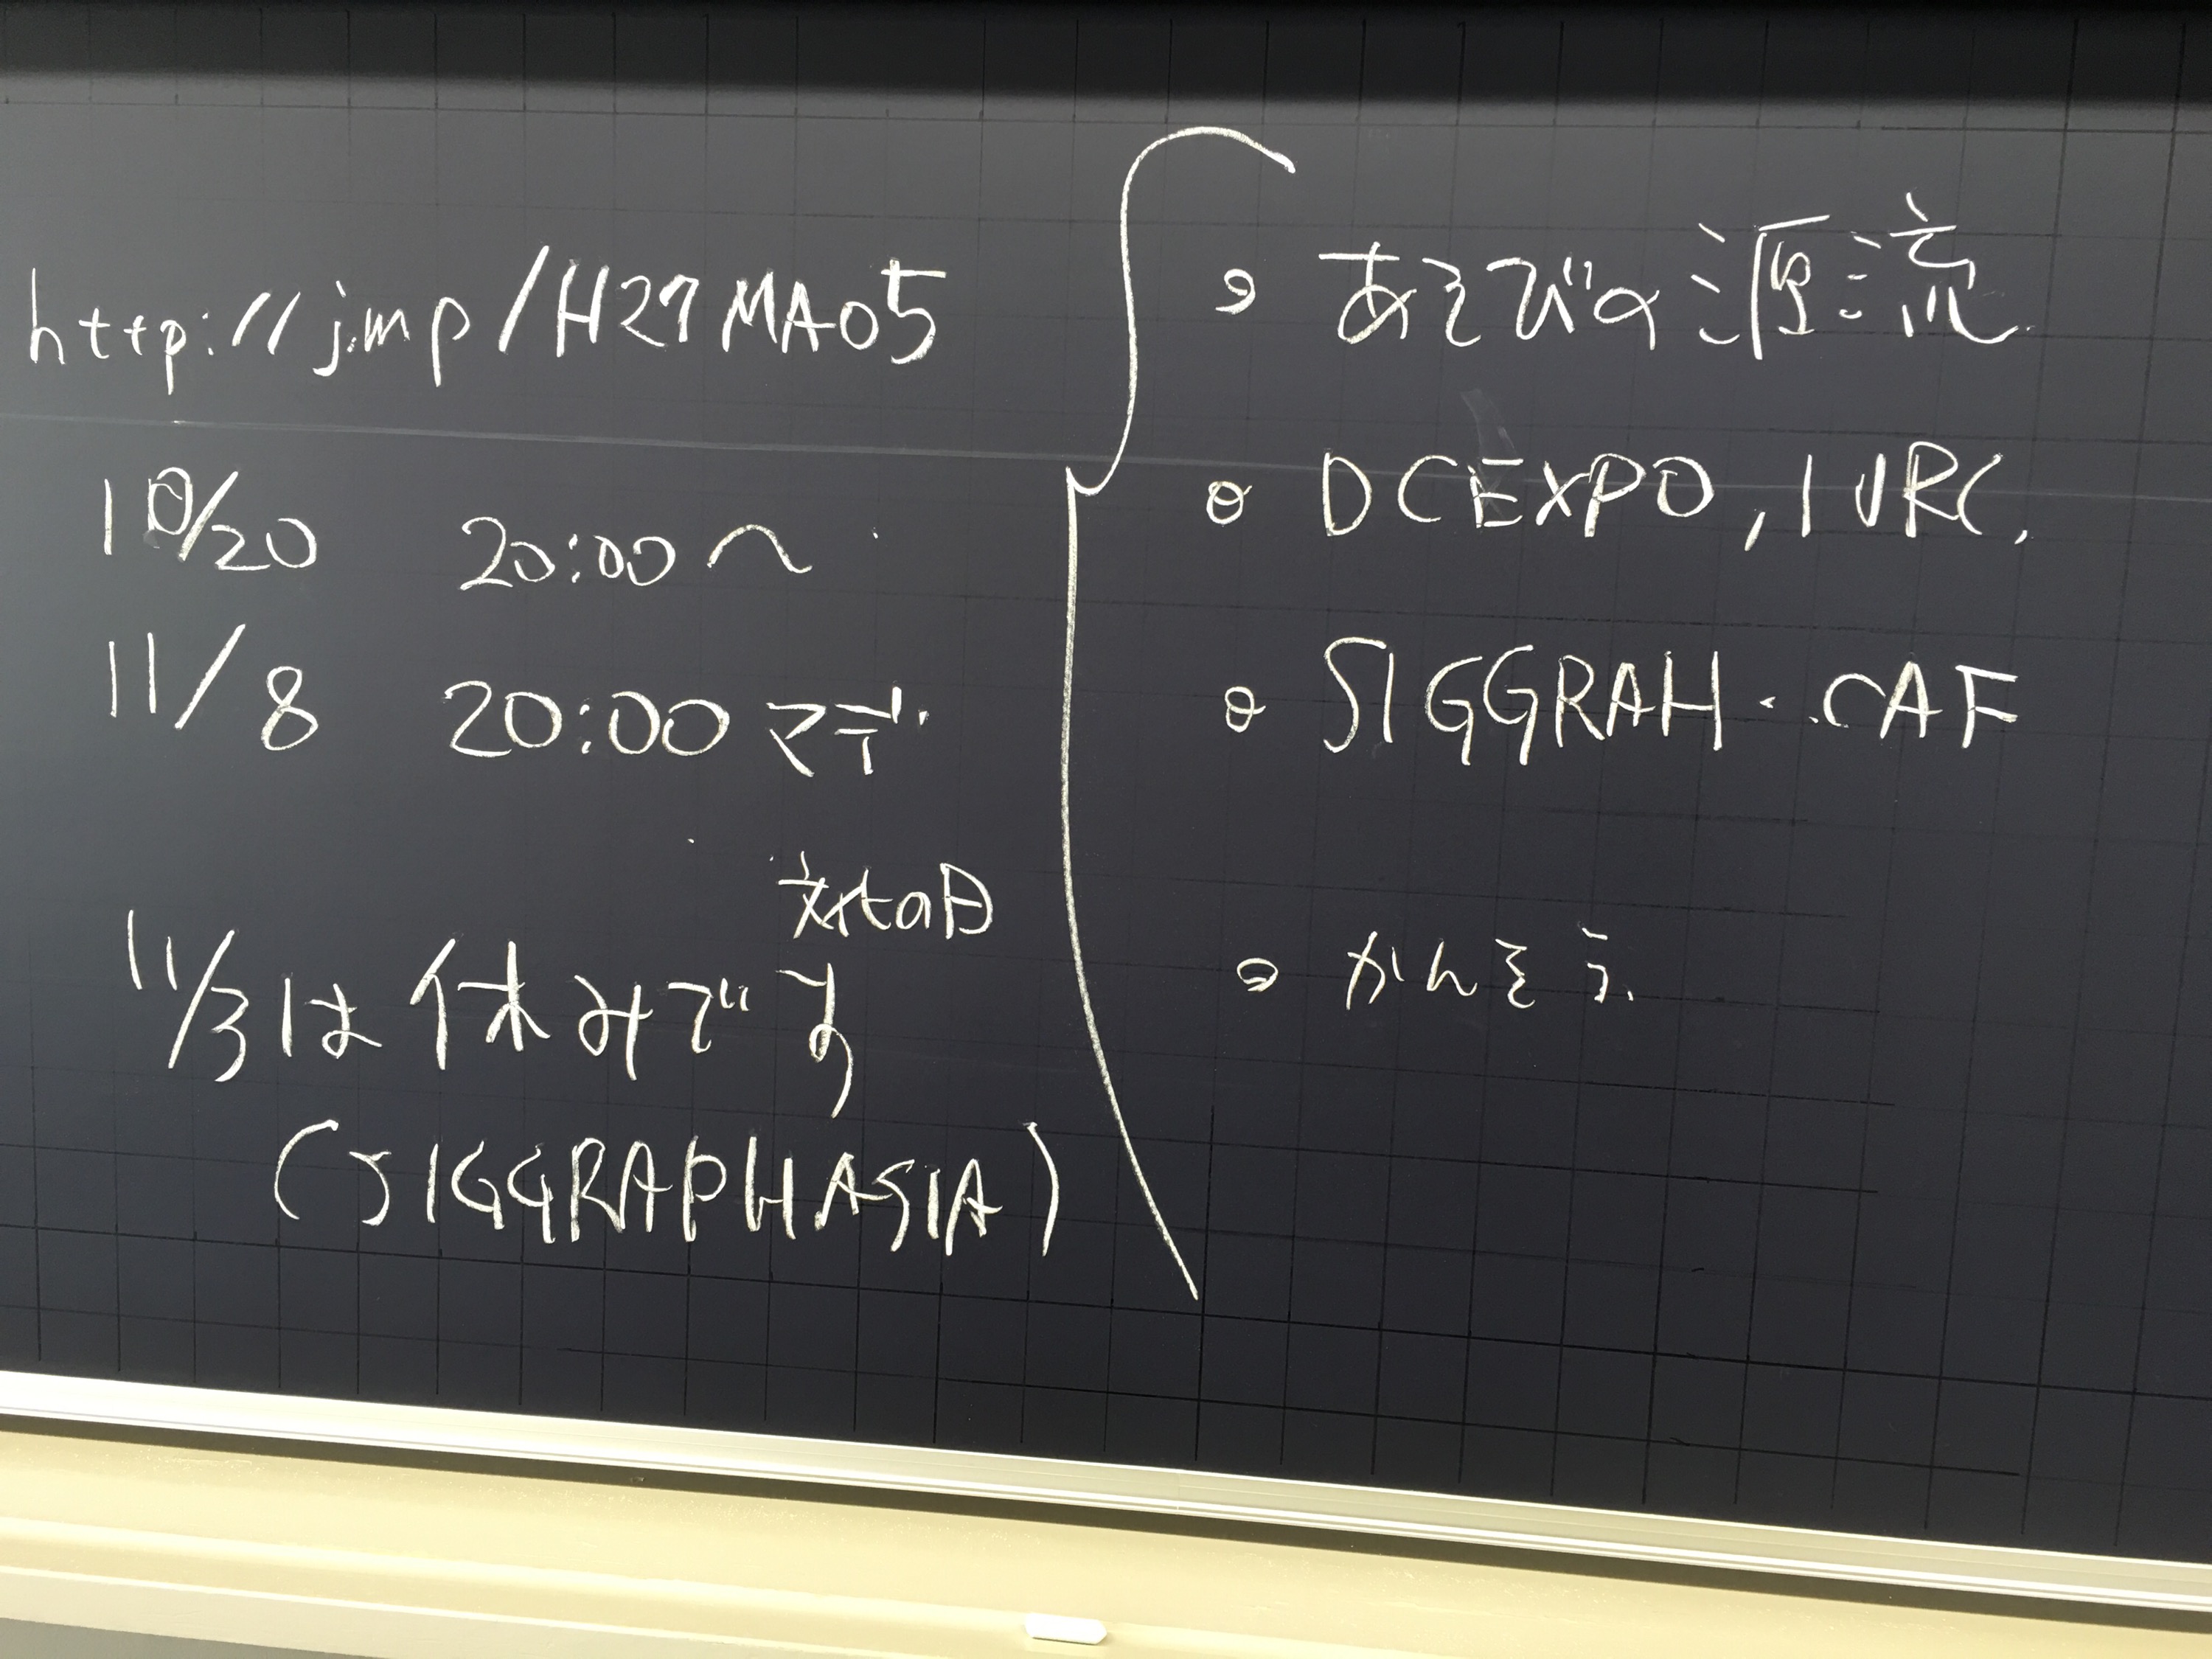 http://j.mp/H27MA05
10/20 20:00〜
11/8 20:00マデ
文化の日
11/3は休みです
(SIGGRAPHASIA)
。あそびの源流
。DCEXPO, IVRC,
。SIGGRAH・CAF
。かんそう